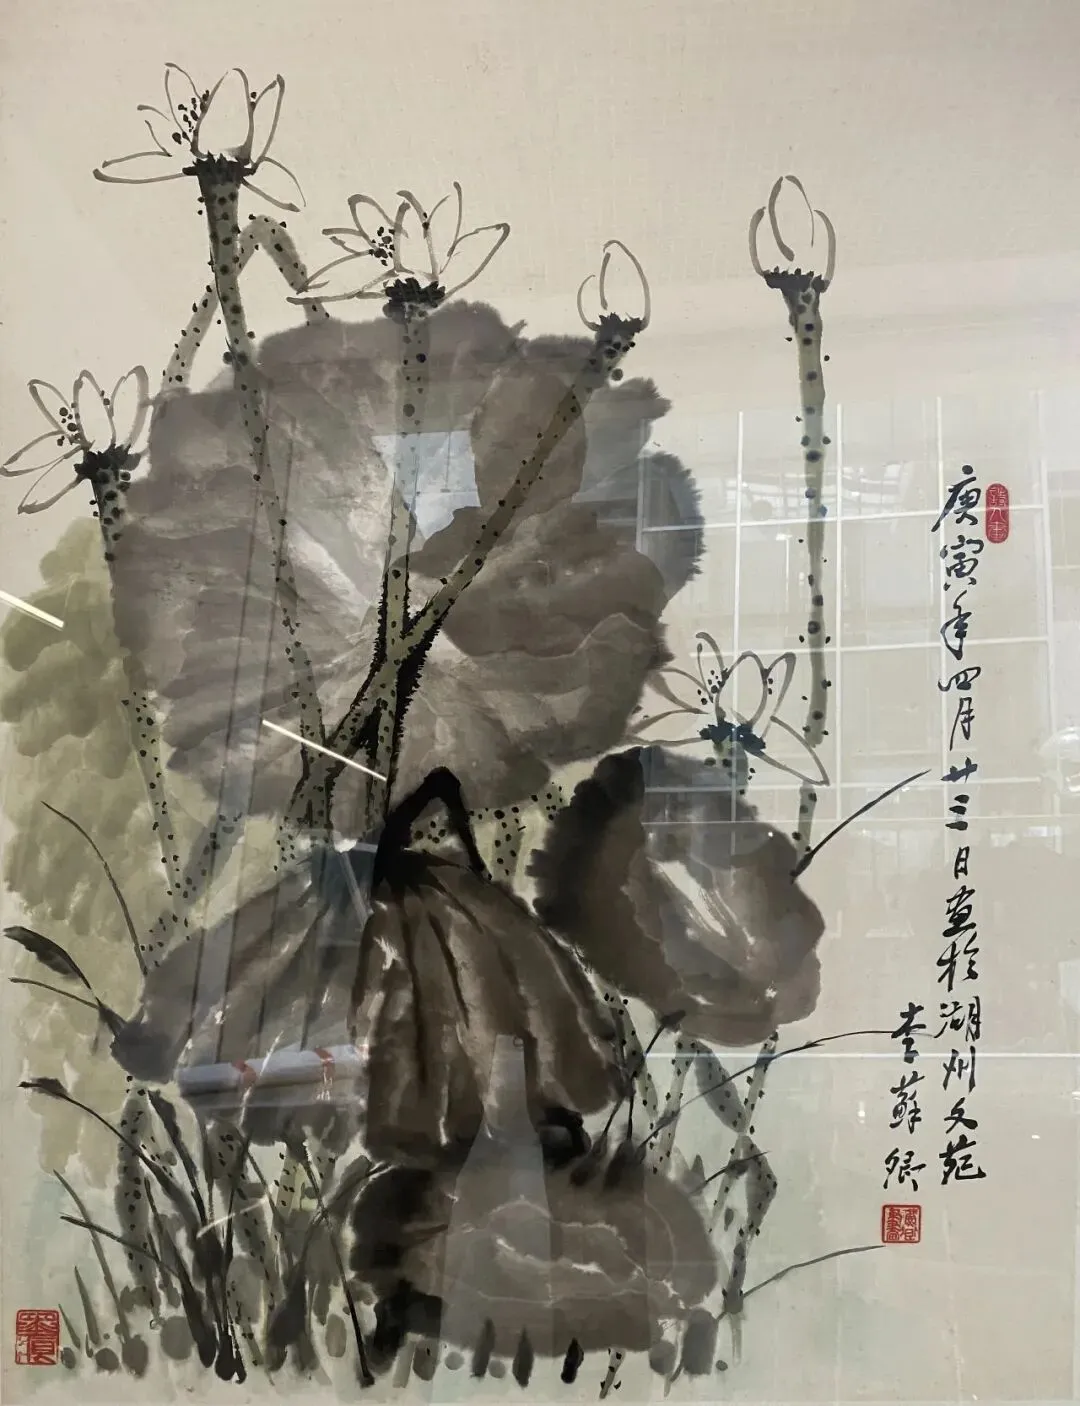 庚寅年四月廿三日画於湖州文苑
李蘇卿